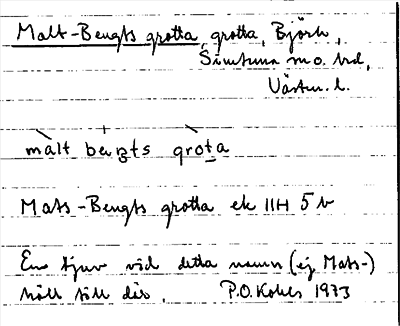 Malt-Bengts grotta, grotta, Björk,
Simtuna sn o. hd,
Västm. l.
màlt beŋts grota
Mats-Bengts grotta ek IIH 5 b
En tjuv vid detta namn (ej Mats-)
höll till där. P.O. Kohls 1973